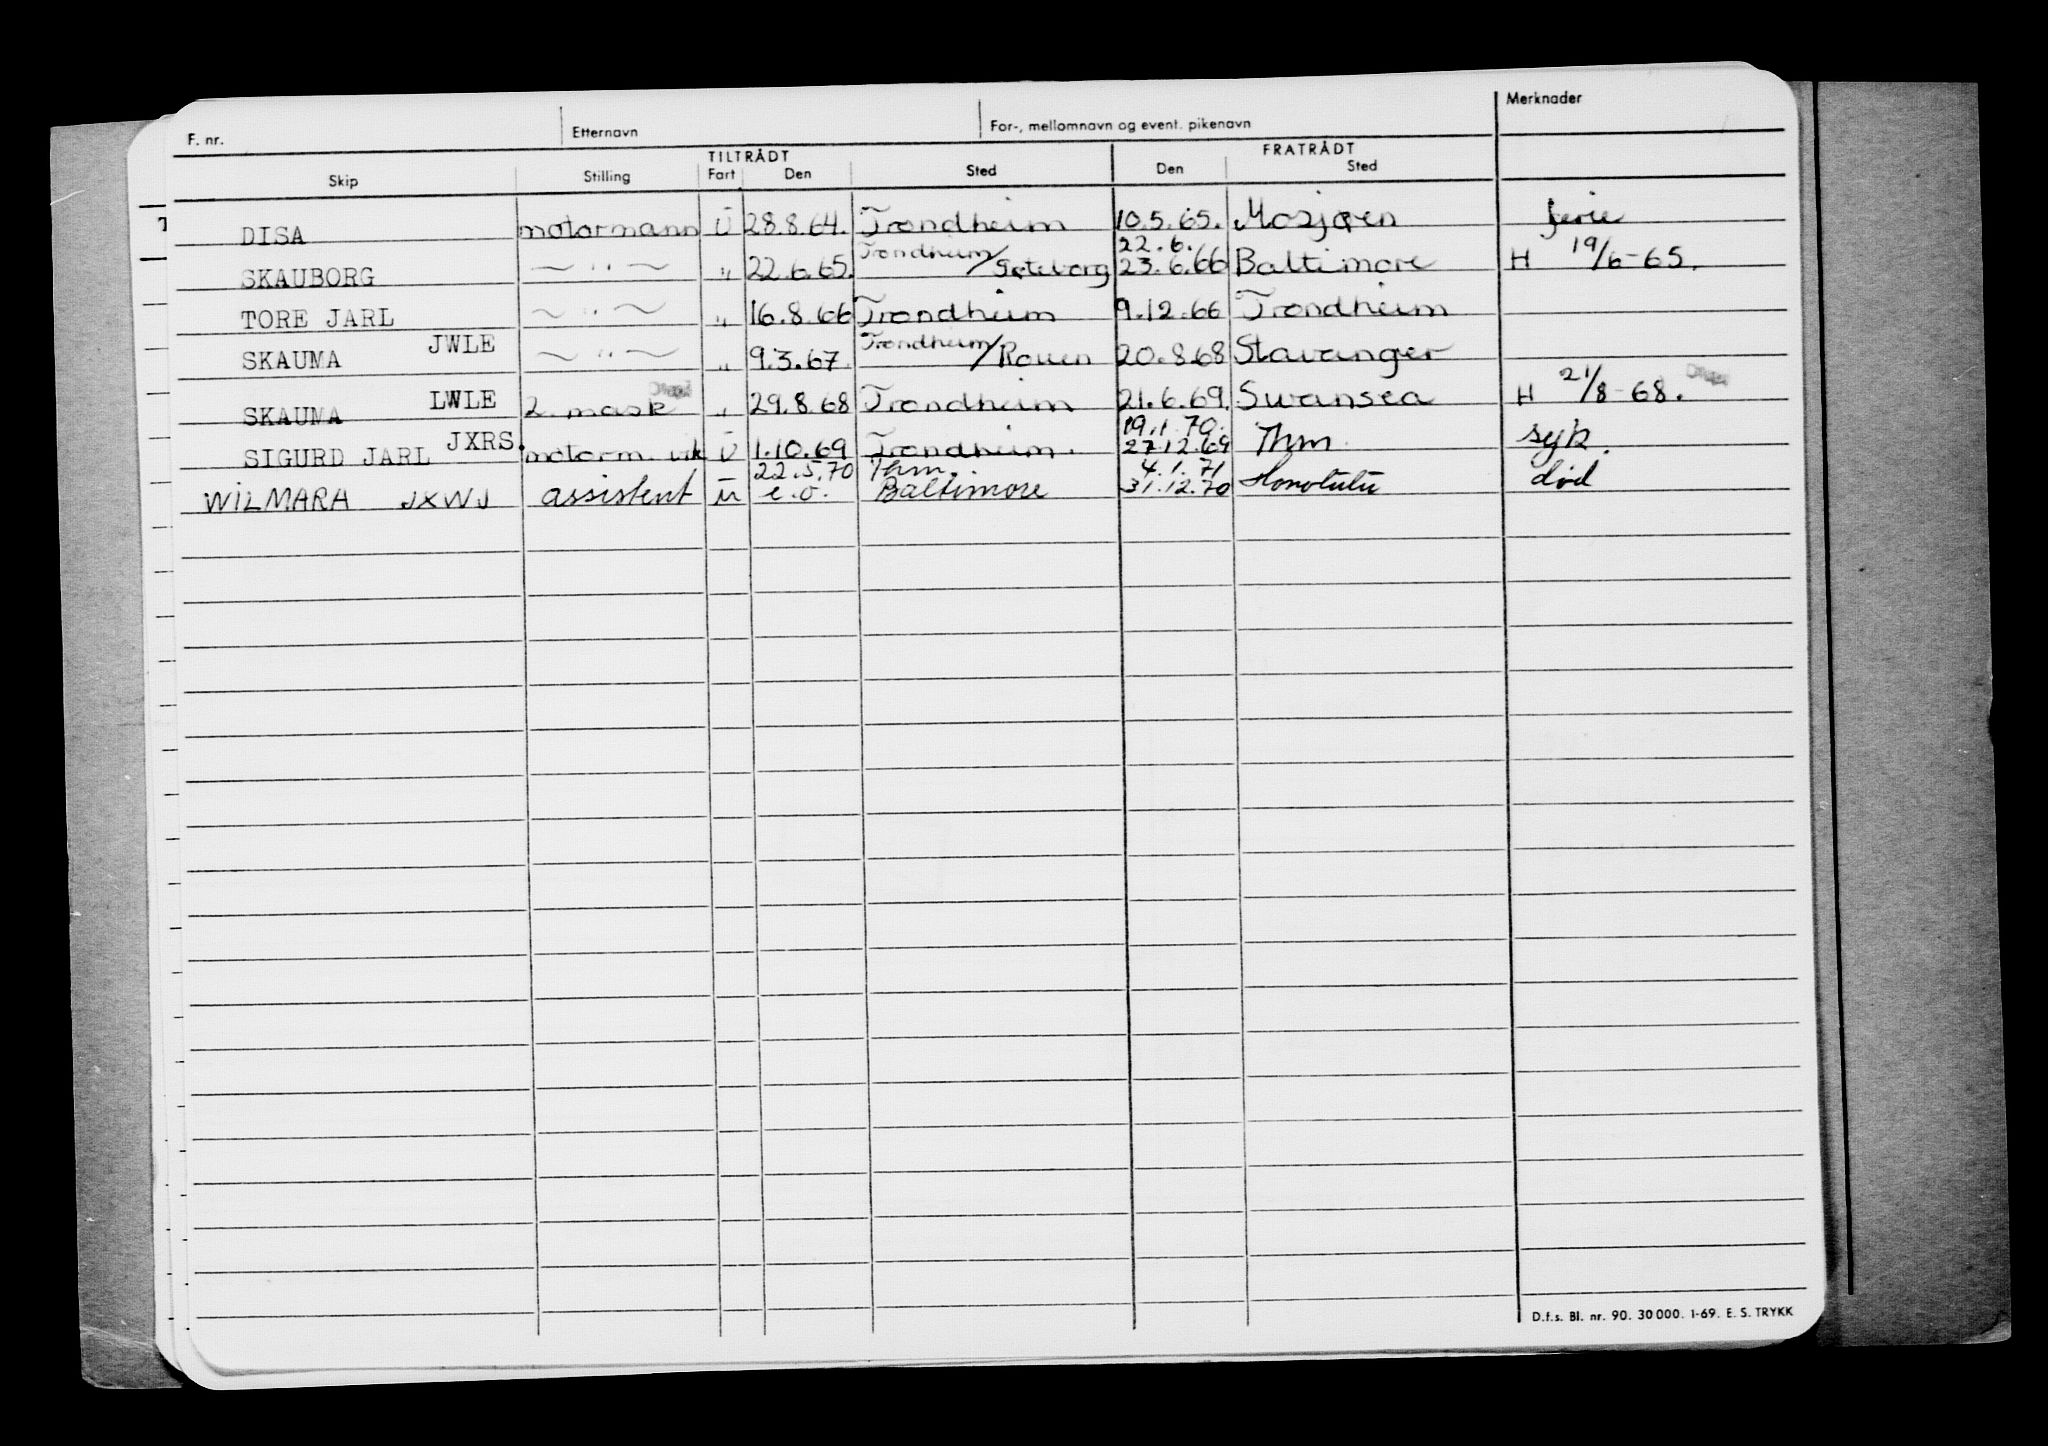 F. nr. Etternavn For-, mellomnavn og event. pikenavn Merknader
TILTRÅDT FRATRÅDT
Skip Stilling Fart Den Sted Den Sted
DISA motormann Ū 28.8.64. Trondheim 10.5.65. Mosjøen ferie
22.6.
SKAUBORG — " — " 22.6.65. Trondheim/Gøteborg 23.6.66 Baltimore H 19/6-65.
TORE JARL — " — " 16.8.66 Trondheim 9.12.66 Trondheim
SKAUMA JWLE — " — " 9.3.67. Trondheim/Rouen 20.8.68 Stavanger
SKAUMA LWLE 2. mask " 29.8.68 Trondheim 21.6.69. Swansea H 21/8-68.
19.1.70.
SIGURD JARL JXRS. motorm. vik Ū 1.10.69 Trondheim. 27.12.69 Thm. syk.
22.5.70 Thm. 4.1.71
WILMARA JXWJ assistent ū e.o. Baltimore 31.12.70 Honolulu død
D.f.s. Bl. nr. 90. 30000. 1-69. E. S. TRYKK